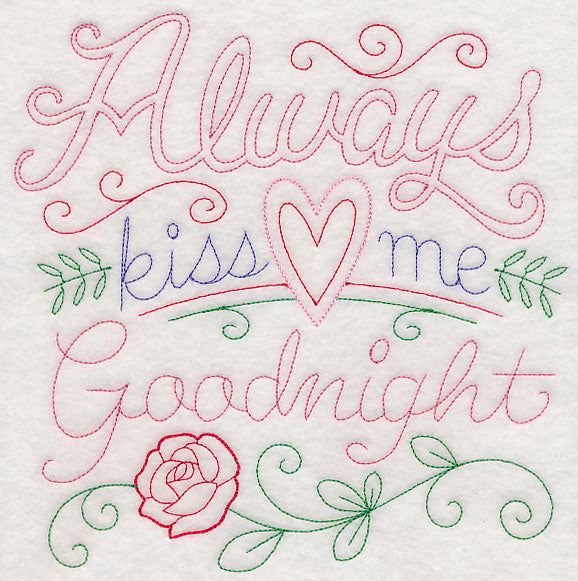 Always
kiss me
Goodnight